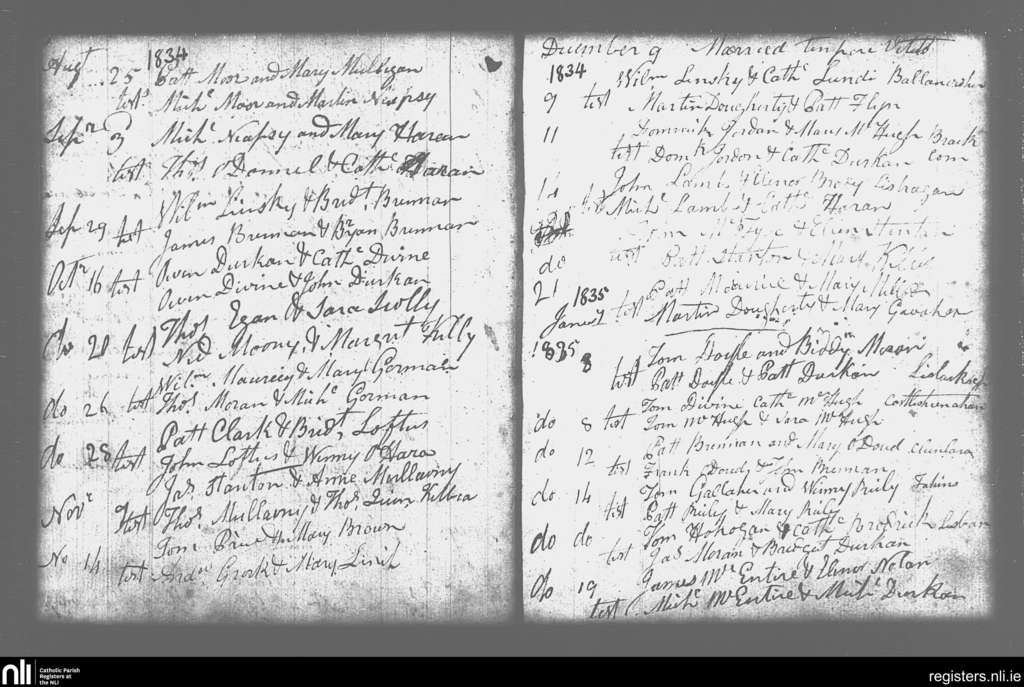 1834
Augt 25 Patt Moor and Mary Mulligan
test Michl Moor and Martin Neapsy
Sepr 3 Michl Neapsy and Mary Haran
test Thos O Donnel & Cathe Haran
Sep 29 Wilm Linsky & Bridt Brennan
test James Brennan & Bryan Brennan
Octr 16 Owen Durkan & Cathe Divine
test Owen Divine & John Durkan
do 20 Thos Egan & Sara
test Ned Moony & Margrit Killy
Wilm & Mary Gorman
do 26 test Thos Moran & Michl Gorman
do 28 Patt Clark & Bridt Loftus
test John Loftus & Winny O Hara
Jas Stanton & Anne Mullarny
Novr test Thos Mullarny & Thos
Tom & Mary Brown
No 14 test & Mary
December 9 Married tempore
1834 Wilm Linsky & Cathe
9 test Martin Dougherty & Patt Flyn
11 Dominick Jordan & Mary Mc Hugh
test Domk Jordon & Cathe Durkan com
14 John Lamb & Elinor Brady
Michl Lamb & Cathe Haran
Tom & Stenton
do test Patt Stenton & Mary
21 Patt & Mary
1835
Janry 1 test Martin Dougherty & Mary Gavahan
1835 8 Tom Doyle and Biddy Moran
test Patt Doyle & Patt Durkan
Tom Divine Cathe Mc Hugh
do 8 test Tom Mc Hugh & Sara Mc Hugh
do 12 Patt Brennan and Mary O Doud
test Frank O Doudy & Brennan
do 14 Tom Gallaher and Winny Reily
test Patt Reily & Mary Reily
do do Tom & Cathe Brodrick
test Jas Moran & Bridget Durkan
do 19 James Mc Entire & Elenor Nolan
test Michl Mc Entire & Michl Durkan
nli
Catholic Parish
Registers at
the NLI
registers.nli.ie